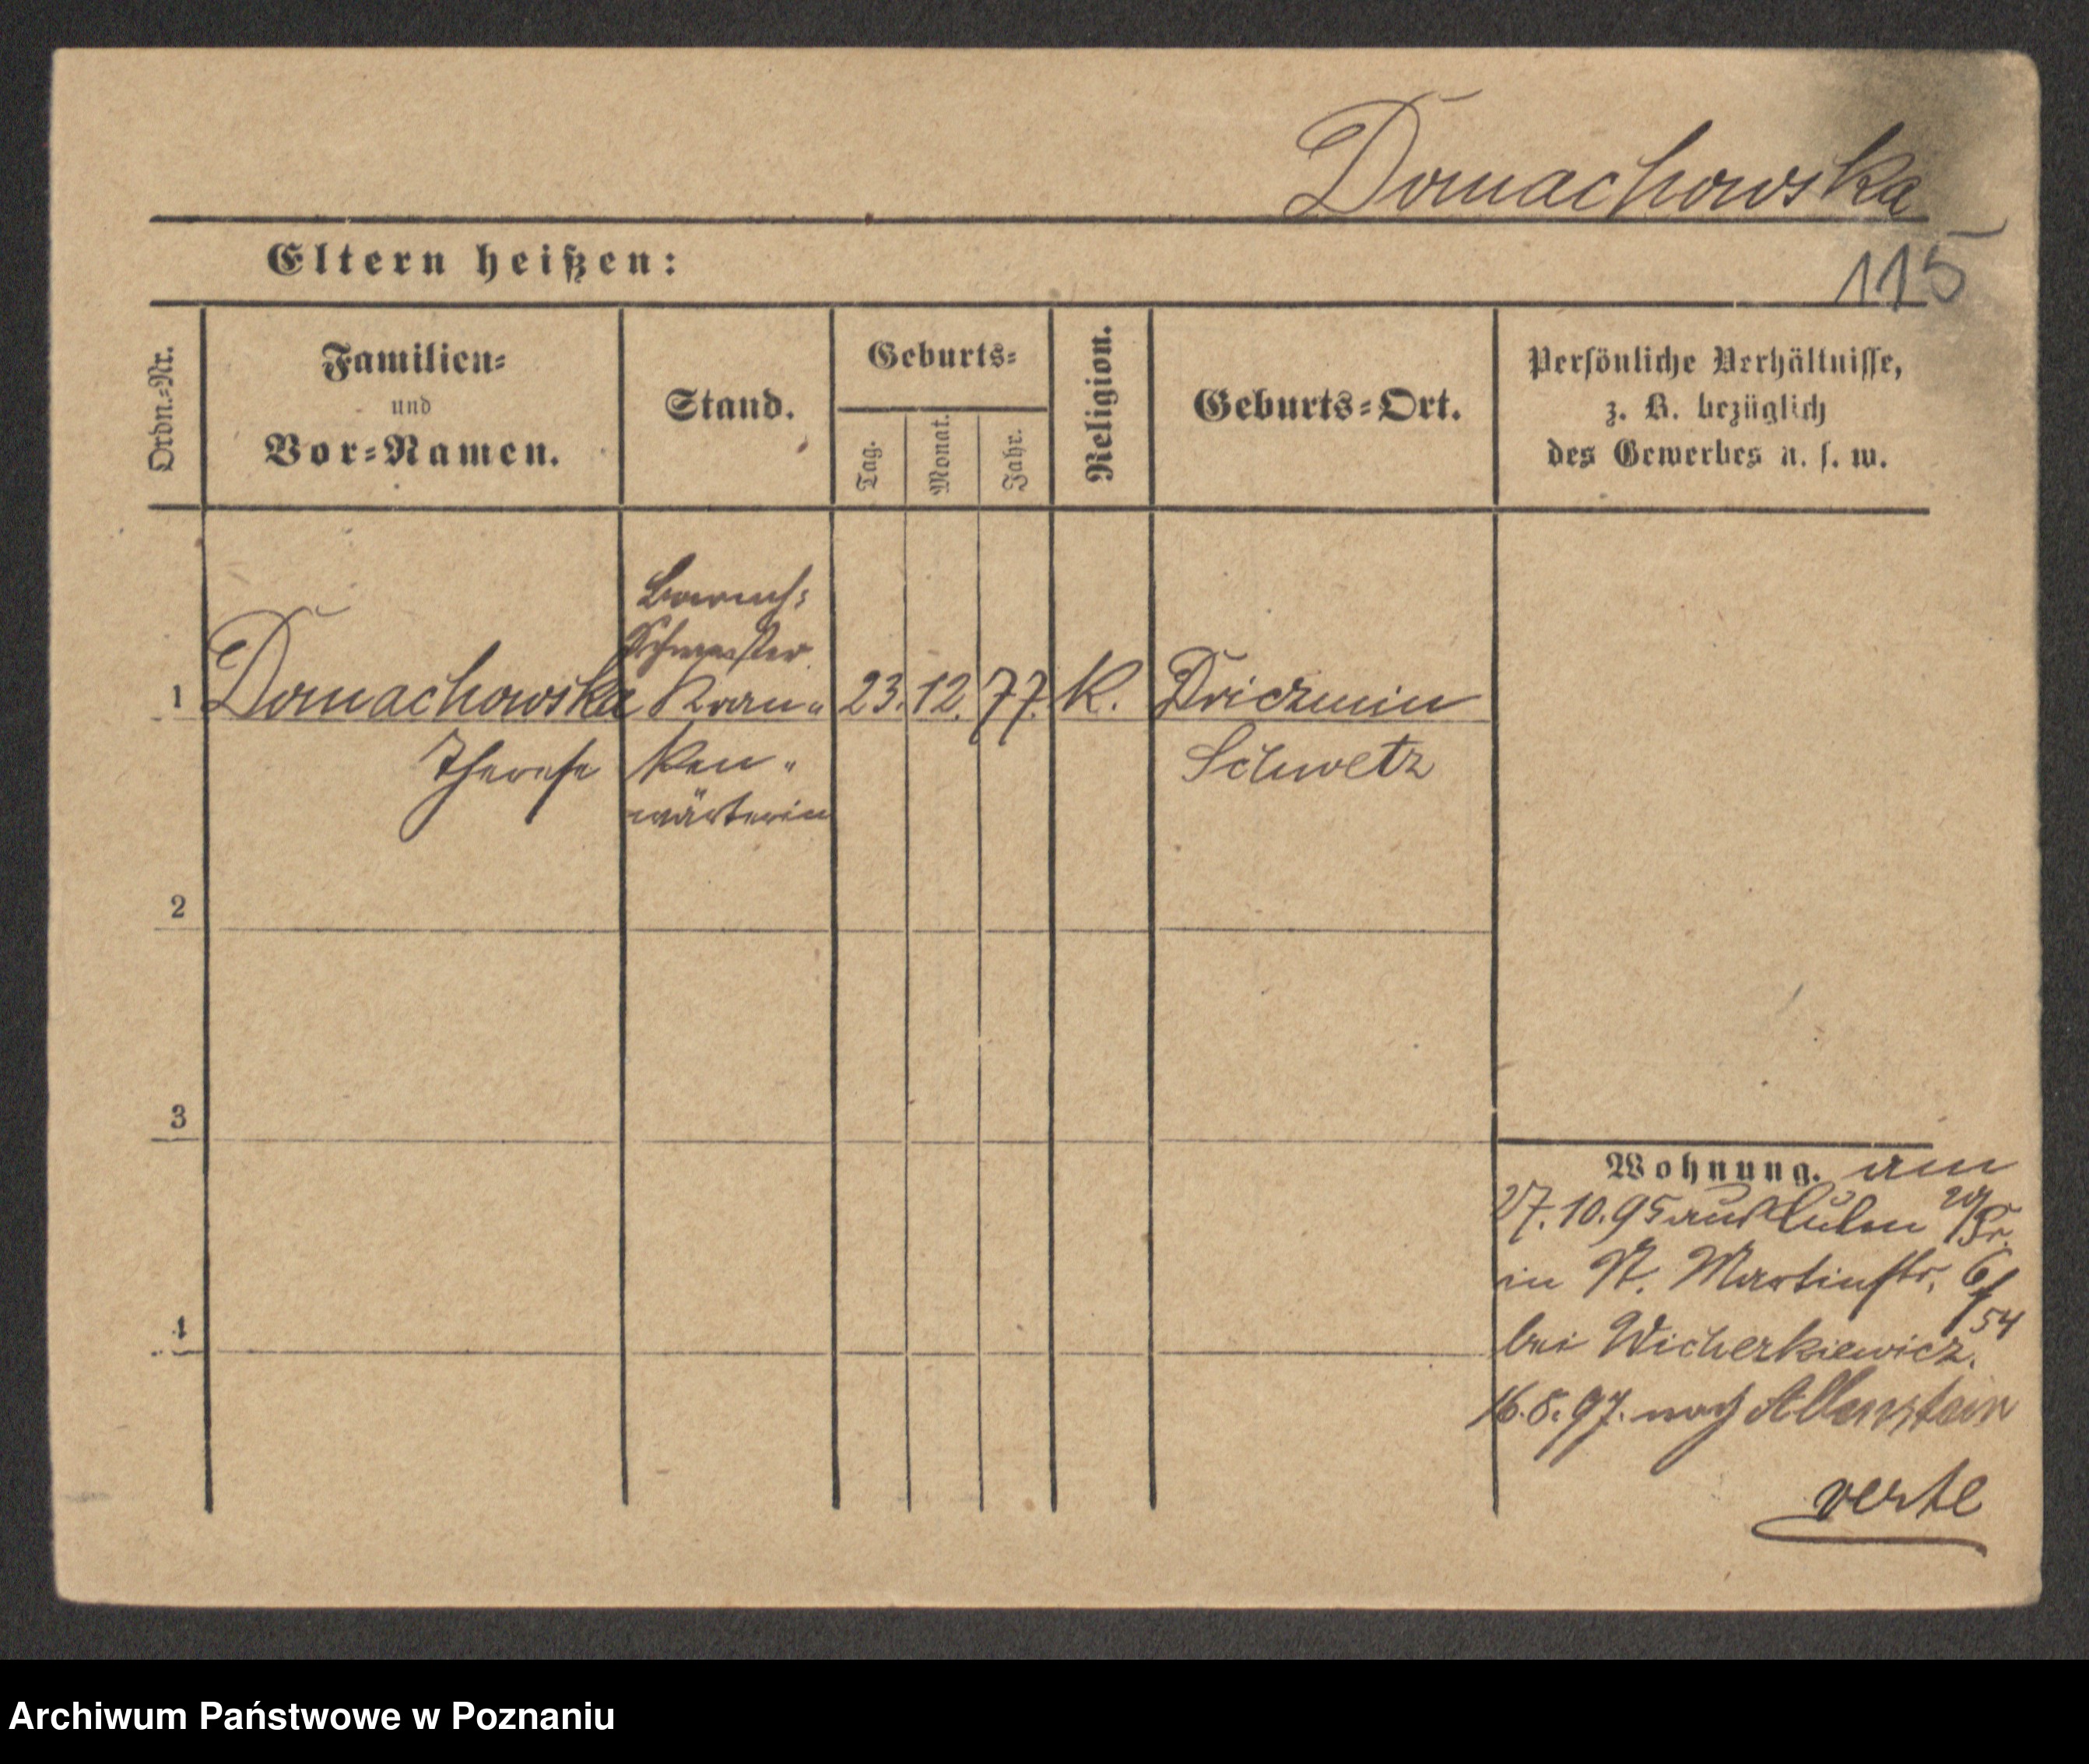 Domachowska
115
Eltern heißen:
Ordn.-Nr.
Familien-
und
Vor-Namen.
Stand.
Geburts-
Tag.
Monat.
Jahr.
Religion.
Geburts-Ort.
Persönliche Verhältnisse,
z. B. bezüglich
des Gewerbes u. s. w.
Schwester
1 Domachowska Kran- 23. 12. 77. K. Driczmin
Therese ken- Schwetz
wärterin
2
3
4
Wohnung. am
27.10.95 aus Culm W/Pr.
in St. Martinstr. 6/54
bei Wicherkiewicz.
16.8.97. nach Allenstein
verte
Archiwum Państwowe w Poznaniu